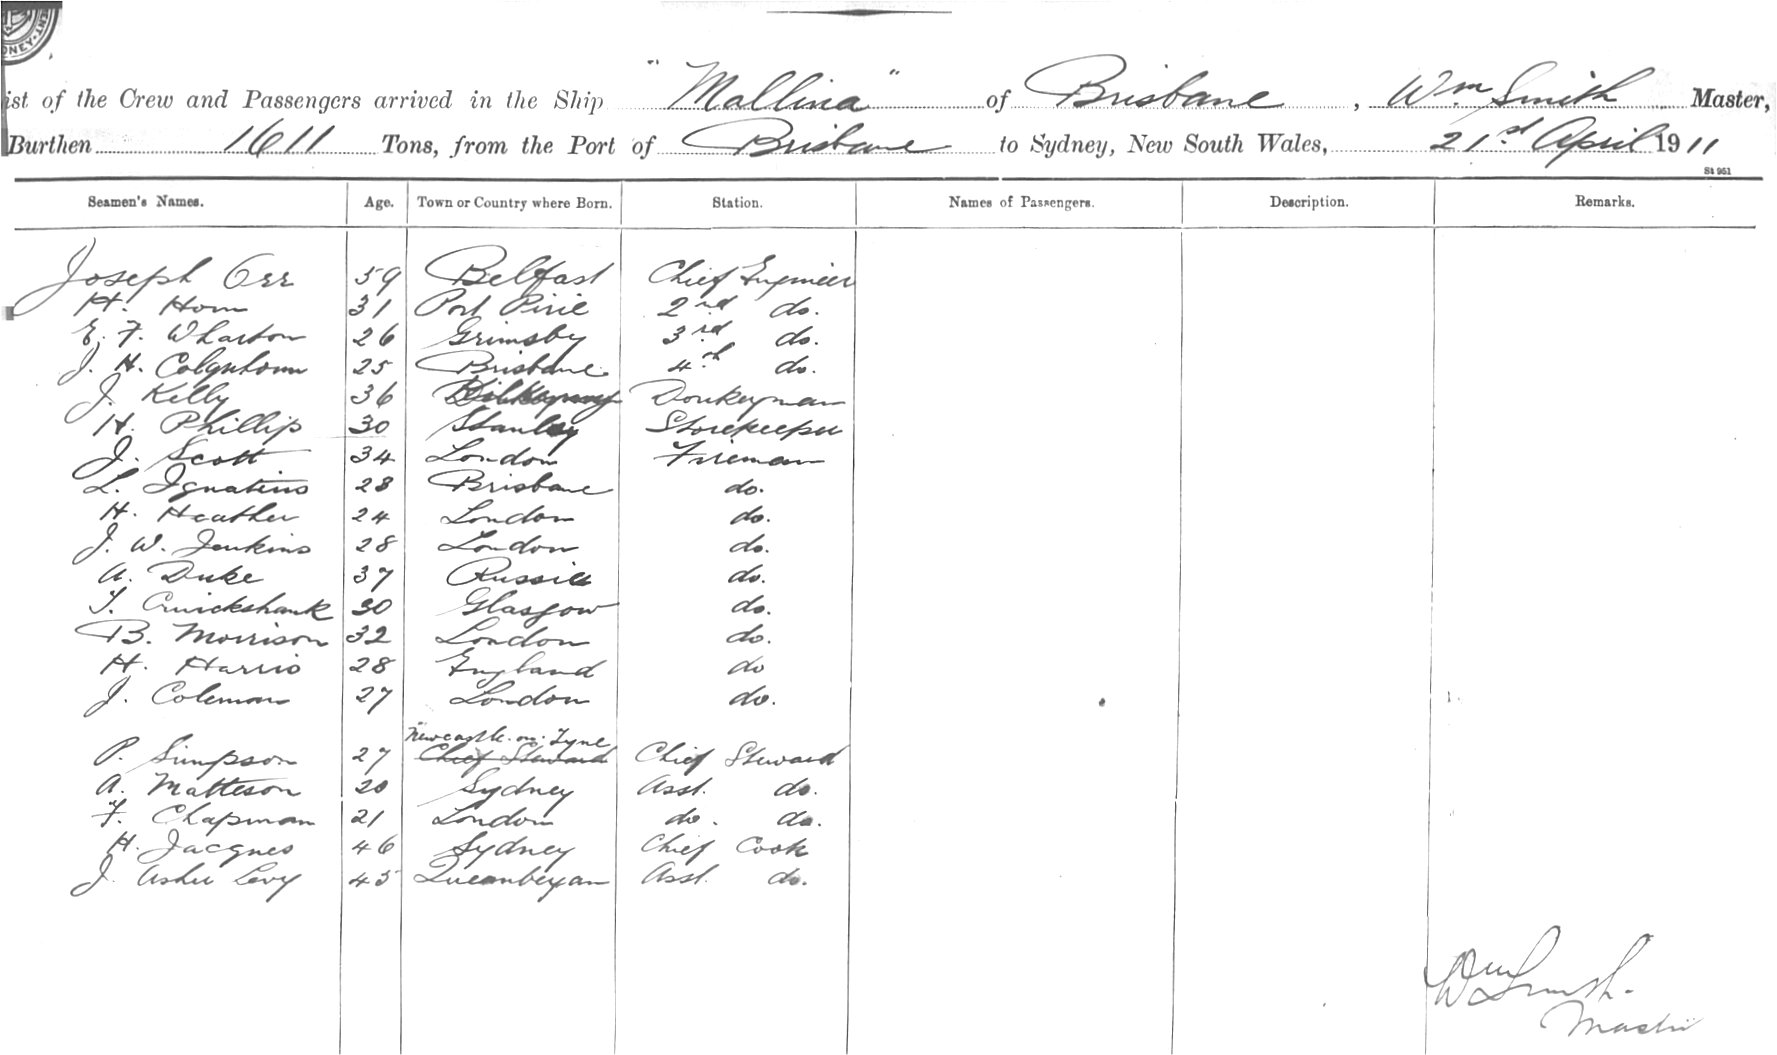 NEY·
ist of the Crew and Passengers arrived in the Ship "Mallina" of Brisbane, Wm Smith Master,
Burthen 1611 Tons, from the Port of Brisbane to Sydney, New South Wales, 21st April 1911
St 951
Seamen's Names. Age. Town or Country where Born. Station. Names of Passengers. Description. Remarks.
Joseph Orr 59 Belfast Chief Engineer
H. Horn 31 Port Pirie 2nd do.
E. F. Wharton 26 Grimsby 3rd do.
J. H. Colquhoun 25 Brisbane 4th do.
J. Kelly 36 Donkeyman
H. Phillip 30 Stanley Storekeeper
J. Scott 34 London Fireman
L. Ignatius 28 Brisbane do.
H. Heather 24 London do.
J. W. Jenkins 28 London do.
A. Duke 37 Russia do.
T. Cruickshank 30 Glasgow do.
B. Morrison 32 London do.
H. Harris 28 England do
J. Coleman 27 London do.
Newcastle-on-Tyne
P. Simpson 27 Chief Steward Chief Steward
A. Matteson 20 Sydney Asst. do.
F. Chapman 21 London do. do.
H. Jacques 46 Sydney Chief Cook
J. Asher Levy 45 Queanbeyan Asst. do.
Wm Smith.
Master